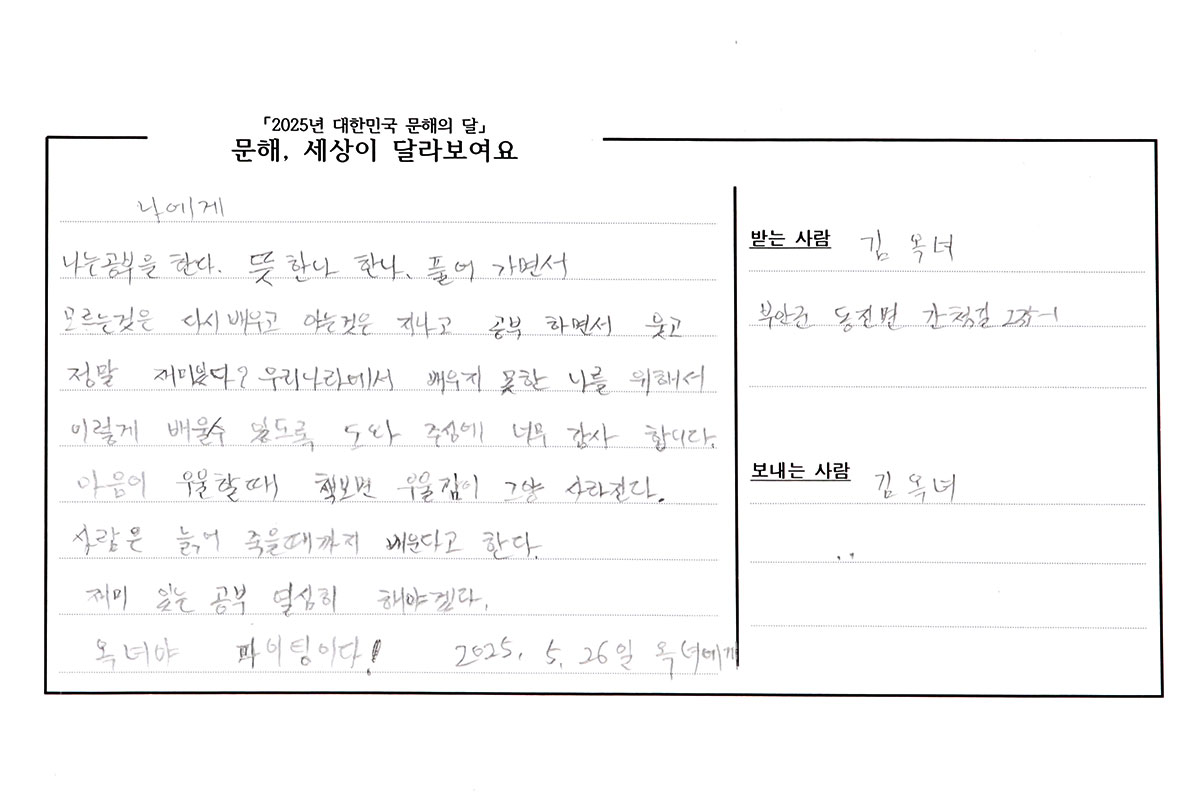 「2025년 대한민국 문해의 달」
문해, 세상이 달라보여요
나에게
나는공부을 한다. 뜻 한나 한나, 풀어 가면서
모르는것은 다시 배우고 아는것은 지나고 공부 하면서 웃고
정말 재미있다? 우리나라에서 배우지 못한 나를 위해서
이렇게 배울수 있도록 도와 주심에 너무 감사 합니다.
마음이 우울할때 책보면 우울감이 그양 사라진다.
사람은 늙어 죽을때까지 배운다고 한다.
재미 있는 공부 열심히 해야겠다.
옥녀야 파이팅이다! 2025. 5. 26일 옥녀에게
받는 사람 김 옥녀
부안군 동진면 간척길
보내는 사람 김 옥녀